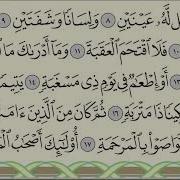 ل لَّهُۥ عَيْنَيْنِ ٨ وَلِسَانًا وَشَفَتَيْنِ ٩
١٠ فَلَا ٱقْتَحَمَ ٱلْعَقَبَةَ ١١ وَمَآ أَدْرَىٰكَ مَا
١٣ أَوْ إِطْعَٰمٌ فِى يَوْمٍ ذِى مَسْغَبَةٍ ١٤ يَتِيم
كِينًا ذَا مَتْرَبَةٍ ١٦ ثُمَّ كَانَ مِنَ ٱلَّذِينَ ءَامَ
وَاصَوْا۟ بِٱلْمَرْحَمَةِ ١٧ أُو۟لَٰٓئِكَ أَصْحَٰبُ ٱلْ